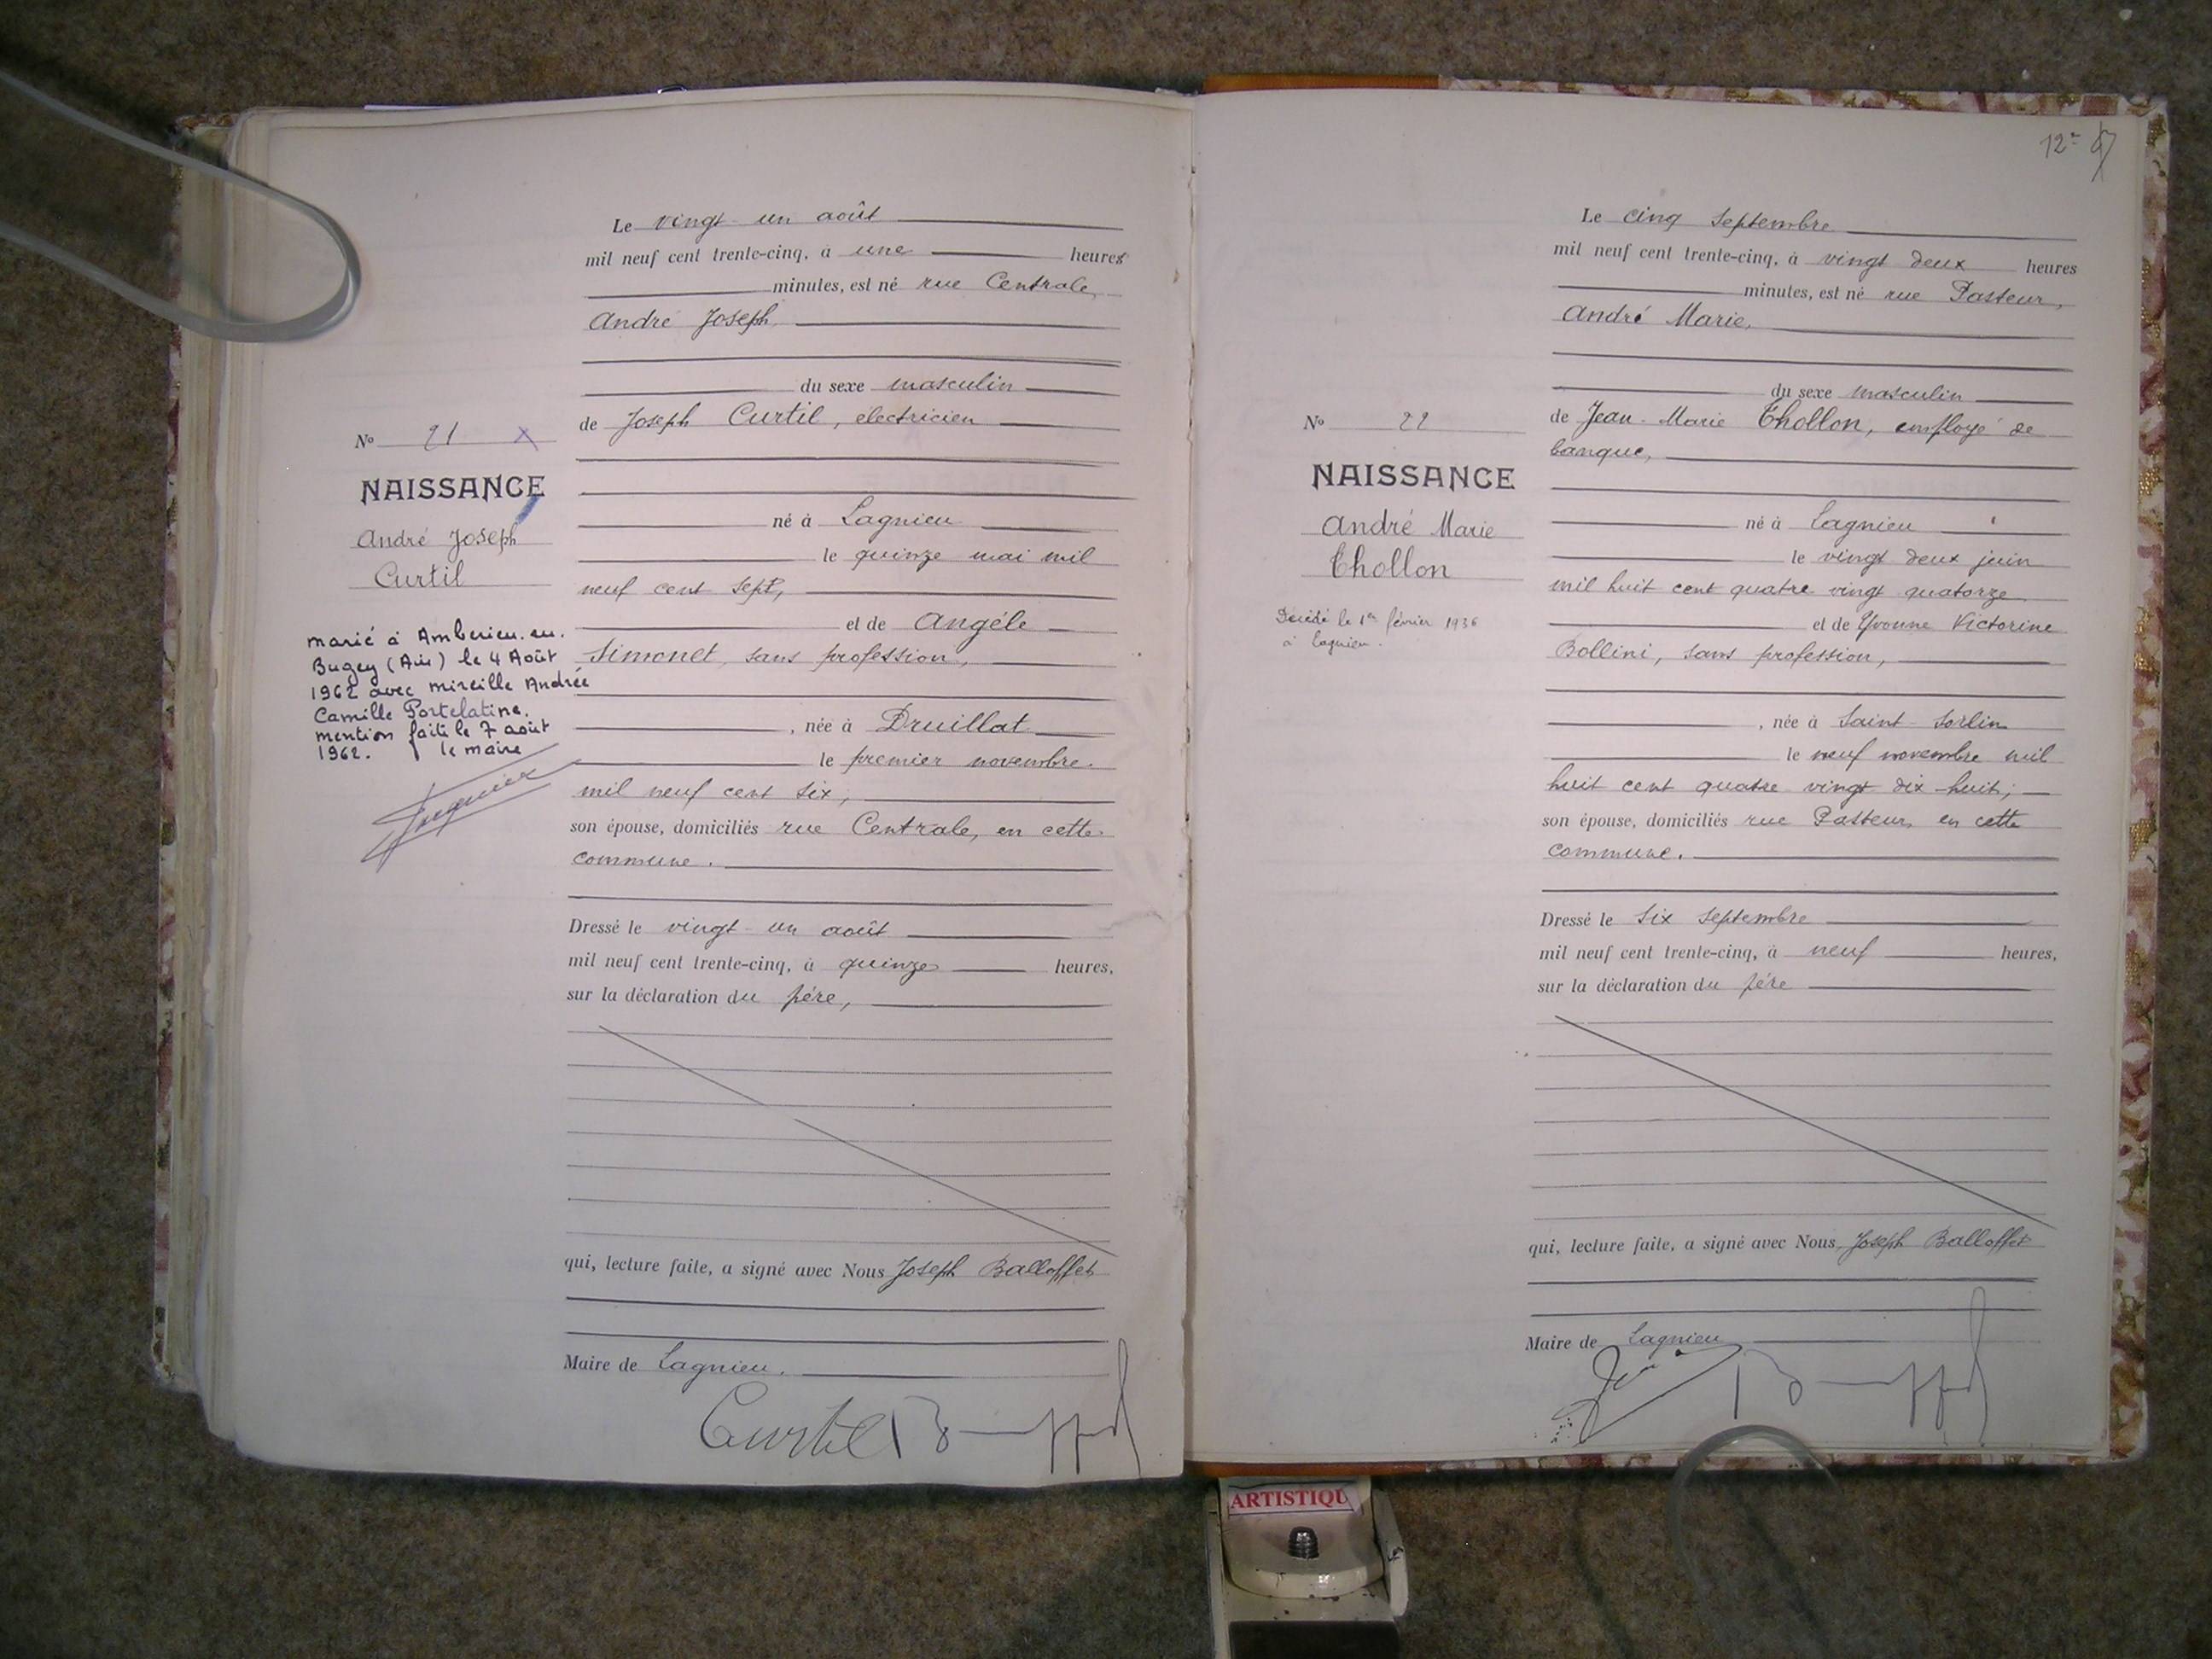 Le vingt-un août
mil neuf cent trente-cinq, à une heures
minutes, est né rue Centrale,
André Joseph
du sexe masculin
de Joseph Curtil, electricien
né à Lagnieu
le quinze mai mil
neuf cent sept,
et de Angéle
Simonet, sans profession,
, née à Druillat
le premier novembre
mil neuf cent six,
son épouse, domiciliés rue Centrale, en cette
commune.
Dressé le vingt-un août
mil neuf cent trente-cinq, à quinze heures,
sur la déclaration du père,
qui, lecture faite, a signé avec Nous Joseph Balloffet
Maire de Lagnieu.
Curtil
No 21 X
NAISSANCE
André Joseph
Curtil
marié à Amberieu.en.
Bugey (Ain) le 4 Août
1962 avec Mireille Andrée
Camille Portelatine.
mention faite le 7 août
1962. le maire
12e
Le cinq Septembre
mil neuf cent trente-cinq, à vingt deux heures
minutes, est né rue Pasteur,
André Marie,
du sexe masculin
de Jean-Marie Thollon, employé de
banque,
né à Lagnieu
le vingt deux juin
mil huit cent quatre vingt quatorze
et de Yvonne Victorine
Bollini, sans profession,
, née à Saint-Sorlin
le neuf novembre mil
huit cent quatre vingt dix-huit;
son épouse, domiciliés rue Pasteur, en cette
commune.
Dressé le six septembre
mil neuf cent trente-cinq, à neuf heures,
sur la déclaration du père
qui, lecture faite, a signé avec Nous Joseph Balloffet
Maire de Lagnieu
No 22
NAISSANCE
André Marie
Thollon
Décédé le 1er février 1936
à Lagnieu.
ARTISTIQU